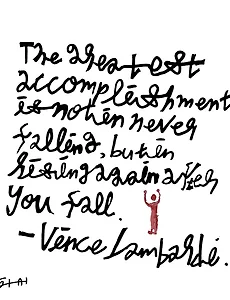 The greatest
accomplishment
is not in never
falling, but in
rising again after
you fall.
- Vince Lombardi.